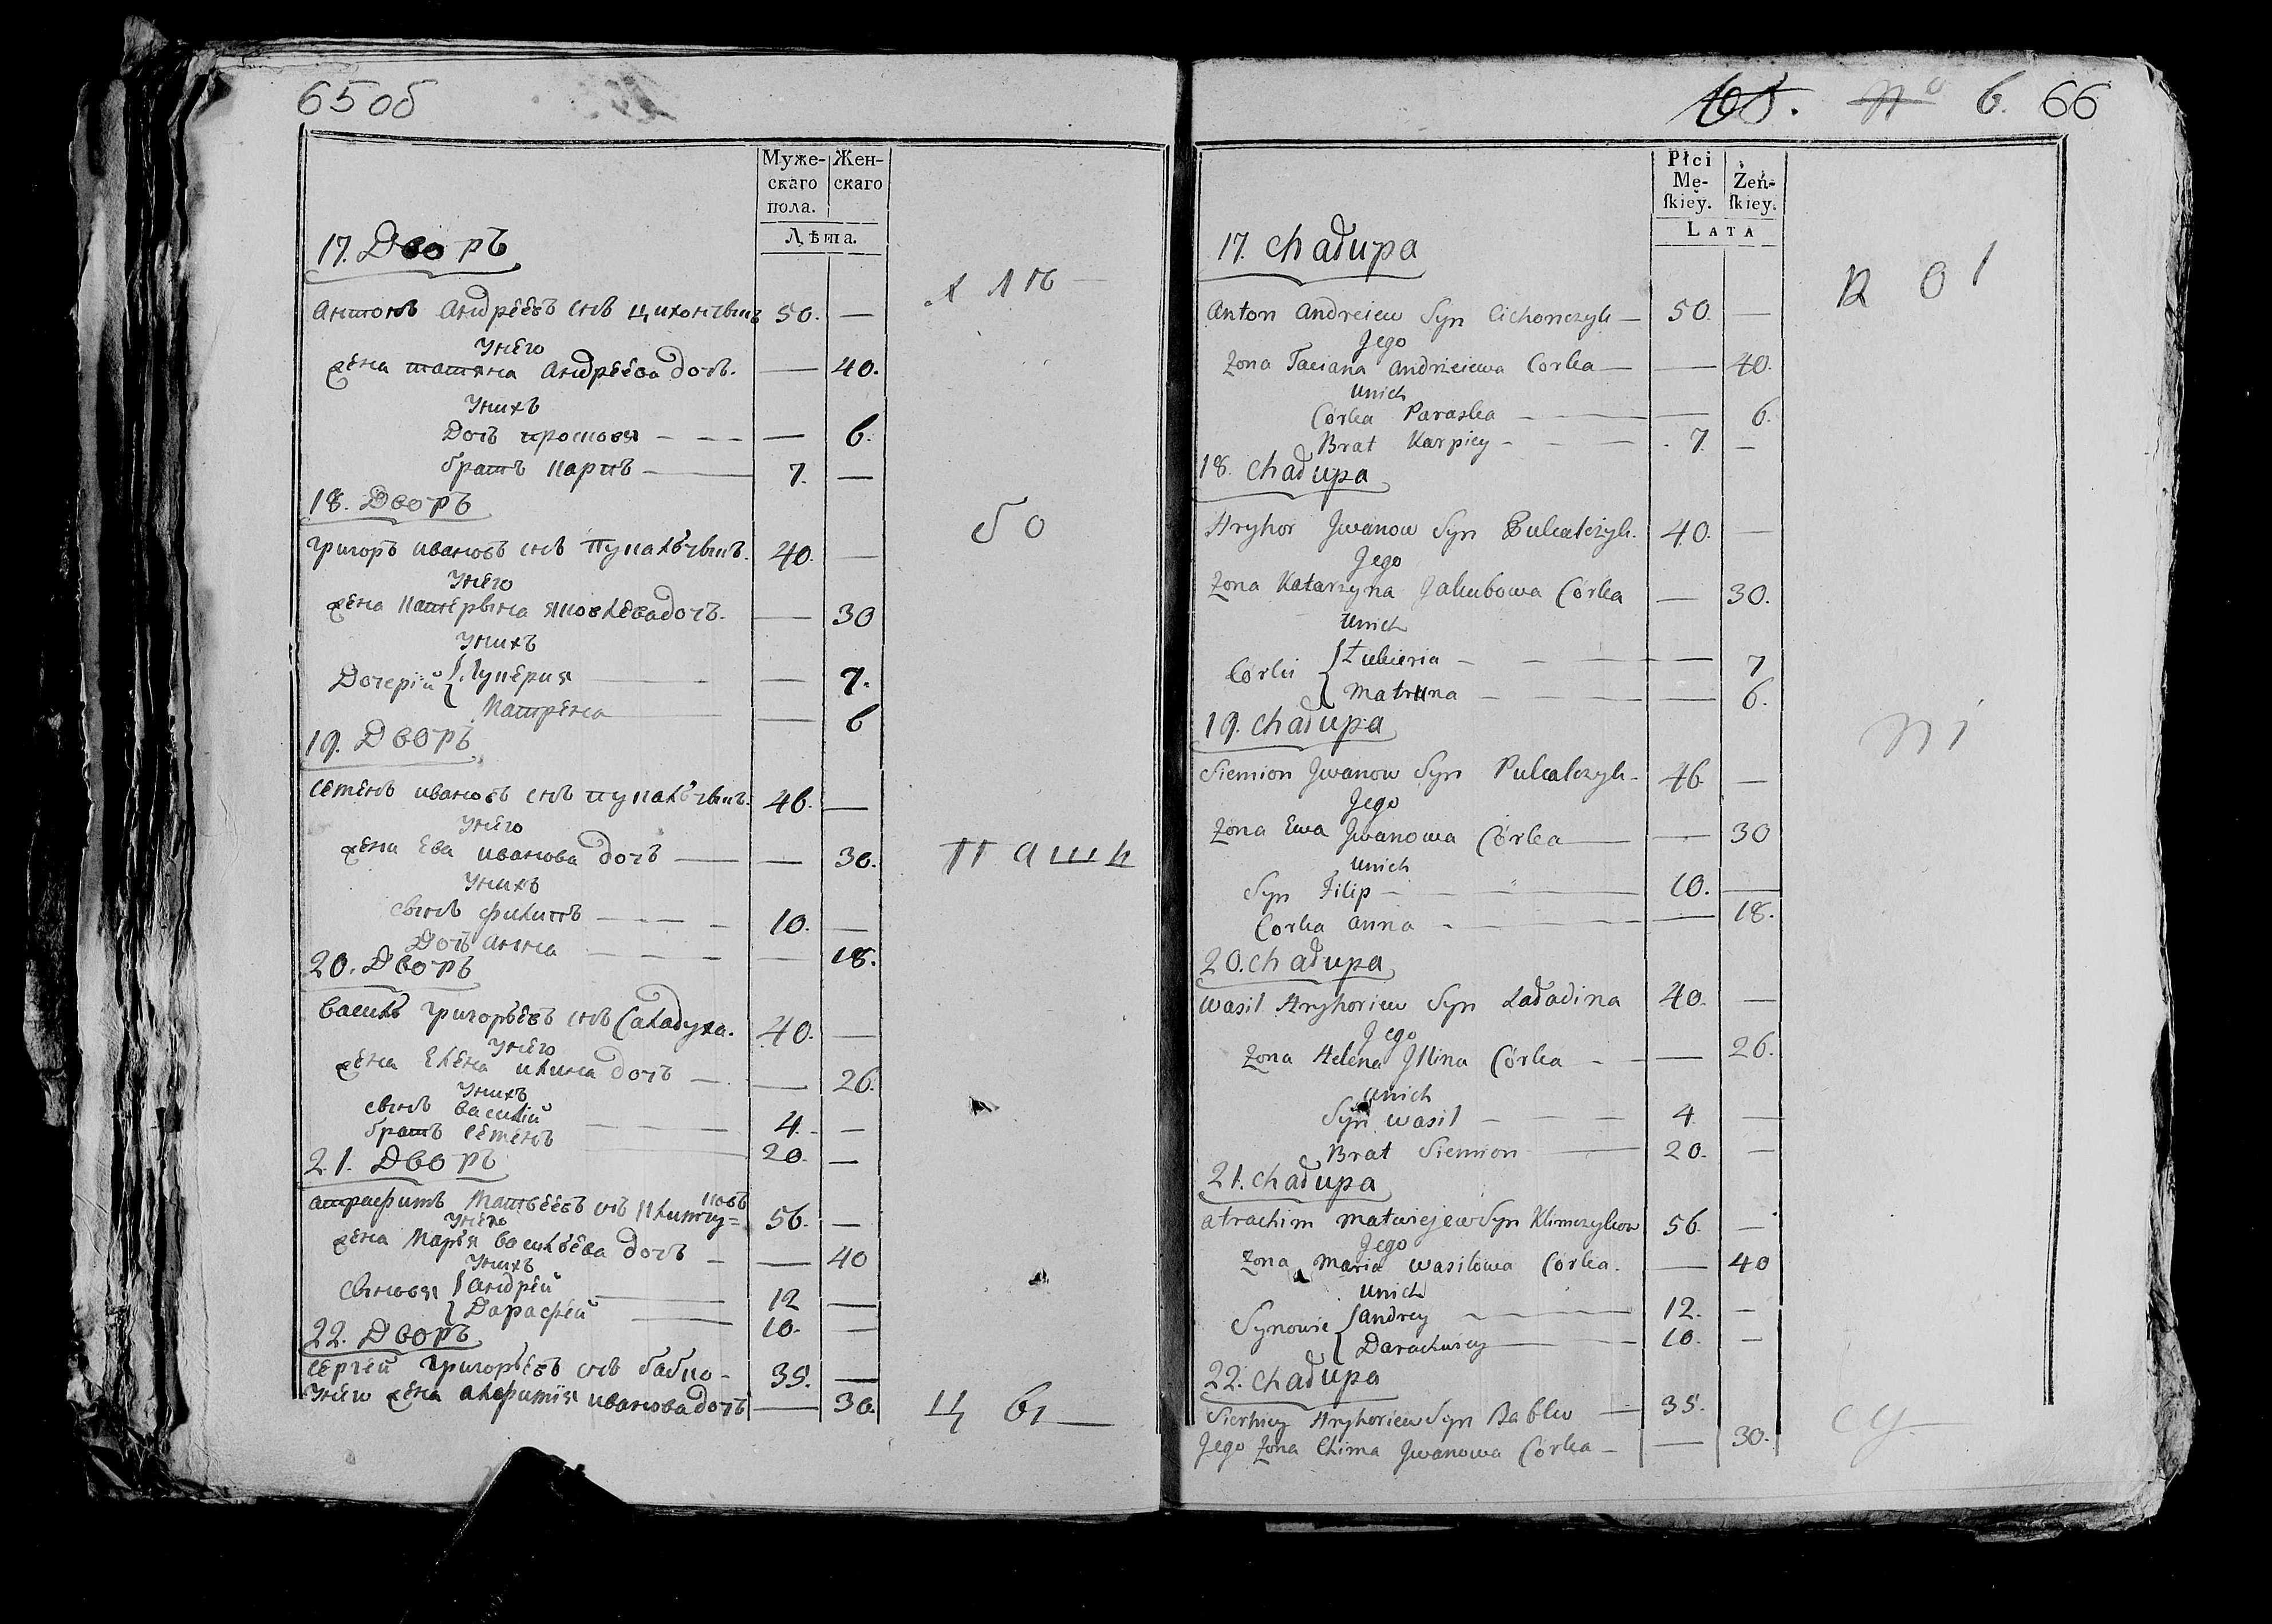 65об
Муже- Жен-
скаго скаго
пола.
Лѣта.
17. Дворъ
Антонъ Андрѣевъ снъ Цихончыкъ 50. —
Унего
жена татяна Андрѣева доч. — 40.
Унихъ
Дочь просковя — 6.
братъ карпъ 7. —
18. Дворъ
Григоръ ивановъ снъ Пукальчыкъ. 40. —
Унего
жена катерына яковлева доч. — 30
Унихъ
Дочерїй Лукерия — 7.
Матрена — 6
19. Дворъ
Семенъ ивановъ снъ пукальчыкъ. 46. —
Унего
жена Ева иванова доч — 30.
Унихъ
сынъ филипъ 10. —
Доч Анна — 18.
20. Дворъ
Василь григорьевъ снъ Саладуха. 40. —
Унего
жена Елена илина доч — 26.
Унихъ
сынъ василїй 4. —
братъ семенъ 20. —
21. Дворъ
Матвеевъ снъ Климчу=ковъ 56. —
Унего
жена Маря васильева доч — 40
Унихъ
сыновя Андрей 12 —
Дарафей 10. —
22. Дворъ
Сергей григорьевъ снъ бабко 35. —
Унего жена иванова доч — 30.
бо
паши
цы
66
6.
Płci
Mę- Żeń-
ſkiey. ſkiey.
LATA
17. Chałupa
Anton Andreiew Syn Cichonczyk 50. —
Jego
Zona Taciana Andrzeiewa Corka — 40.
Unich
Córka Paraska — 6.
Brat Karpiey 7. —
18. Chałupa
Hryhor Jwanow Syn Pukalczyk. 40. —
Jego
Zona Katarzyna Jakubowa Córka — 30.
Unich
Córki Łukieria — 7
Matruna — 6.
19. Chałupa
Siemion Jwanow Syn Pukalczyk 46 —
Jego
Zona Ewa Jwanowa Córka — 30
Unich
Syn Filip 10. —
Corka Anna — 18.
20. Chałupa
Wasil Hryhoriew Syn Ładadina 40. —
Jego
Zona Helena Jllina Córka — 26.
Unich
Syn Wasil 4 —
Brat Siemion 20. —
21. Chałupa
Atrachim Matwiejew Syn Klimczukow 56. —
Jego
Zona Maria Wasilowa Córka. — 40
Unich
Synowie Andrey 12. —
Darachwiey 10. —
22. Chałupa
Sierhiey Hryhoriew Syn Babko 35.
Jego Zona Chima Jwanowa Córka — 30.